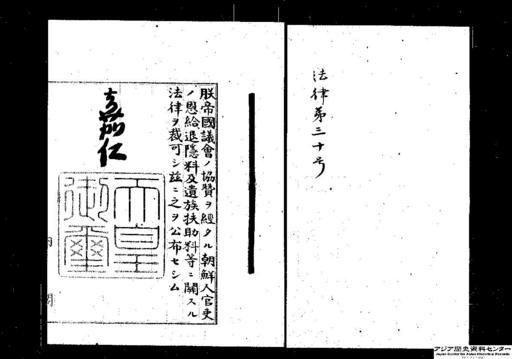 法律第三十号
朕帝國議會ノ協贊ヲ經タル朝鮮人官吏
ノ恩給退隱料及遺族扶助料等ニ關スル
法律ヲ裁可シ茲ニ之ヲ公布セシム
嘉仁
天皇御璽
アジア歴史資料センター
Japan Center for Asian Historical Records